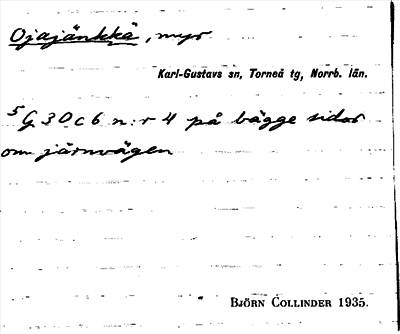 Ojajänkkä, myr
Karl-Gustavs sn, Torneå tg, Norrb. län.
5 G 30 c 6 n:r 4 på bägge sidor
om järnvägen
BJÖRN COLLINDER 1935.